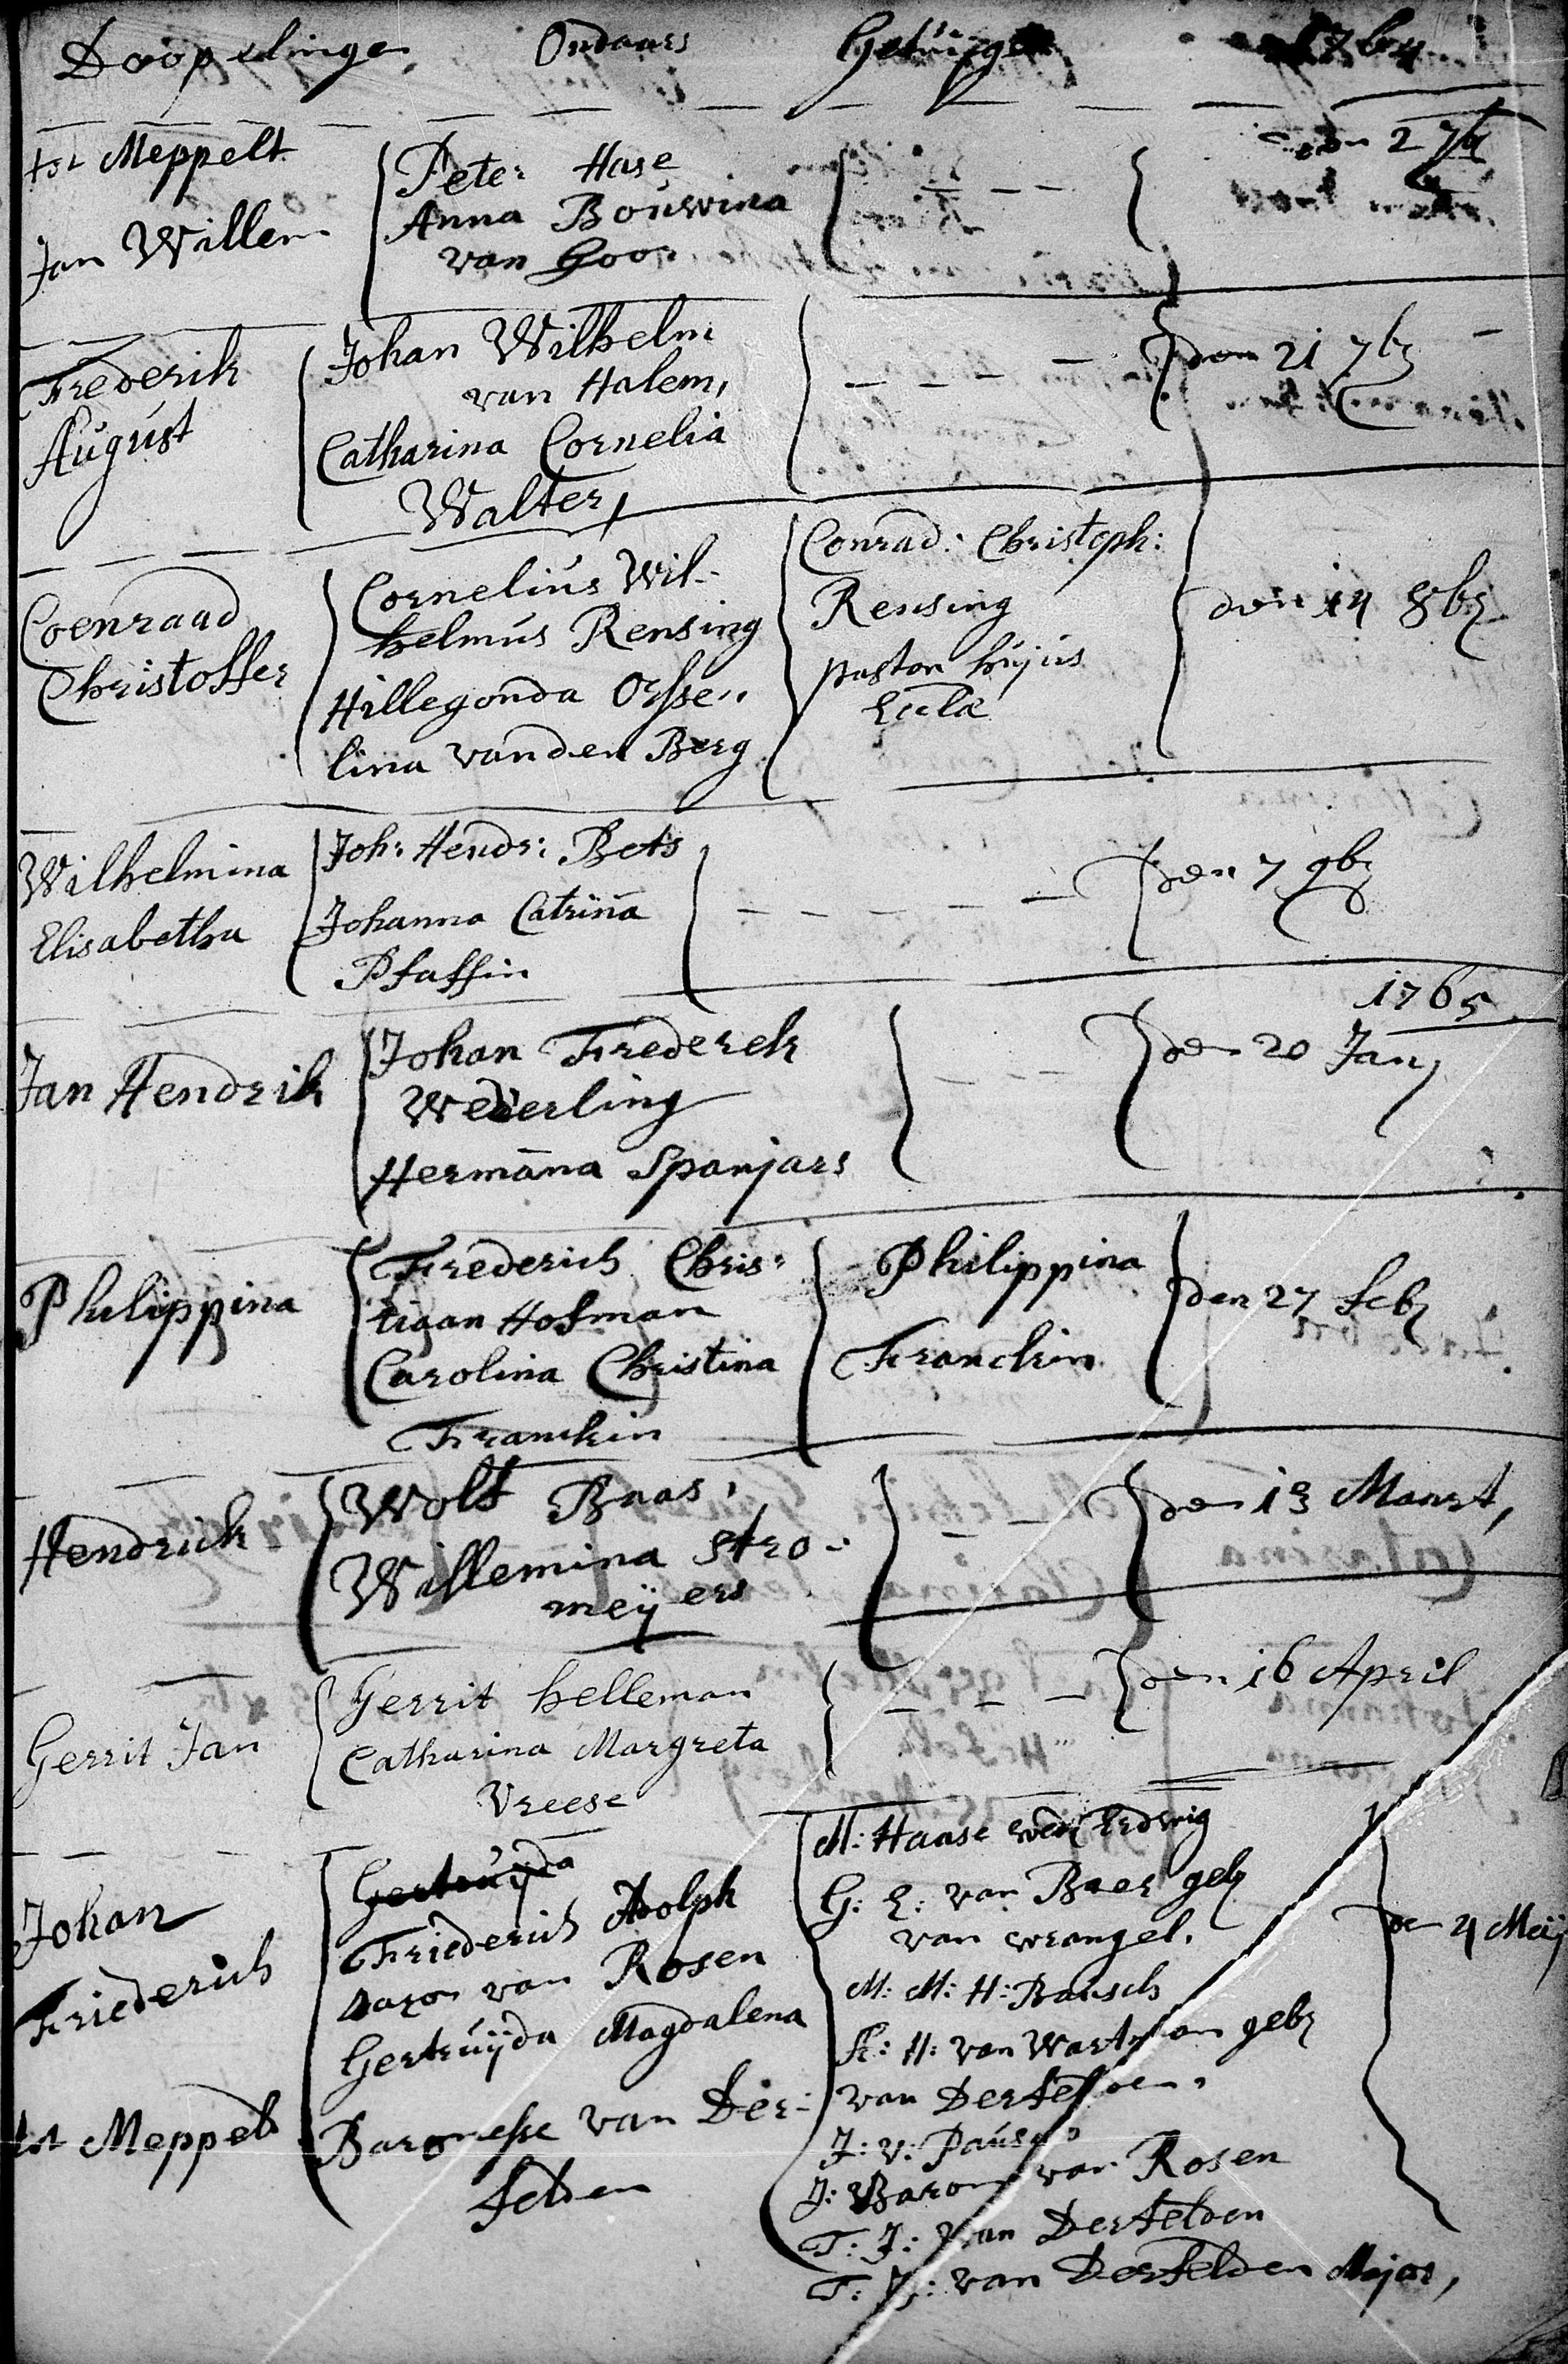 Doopelinge Ouders Getuige 1764
tot Meppelt
Jan Willem
Peter Hase
Anna Bouwina
van Goor
den 2 7br
Frederik
August
Johan Wilhelm
van Halem,
Catharina Cornelia
Walter,
den 21 7br
Coenraad
Christoffer
Cornelius Wil-
helmus Rensing
Hillegonda Osse-
lina vanden Berg
Conrad: Christoph:
Rensing
pastor hujus
Eccla
den 14 8br
Wilhelmina
Elisabetha
Joh: Hendr: Bets
Johanna Catrina
Pfaffin
den 7 9br
1765
Jan Hendrik
Johan Frederek
Wederling
Hermana Spanjars
den 20 Jan
Philippina
Frederich Chris-
tiaan Hofman
Carolina Christina
Franckin
Philippina
Franckin
den 27 febr
Hendrick
Wolf Baas,
Willemina Stro-
meÿers
den 13 Maart,
Gerrit Jan
Gerrit helleman
Catharina Margreta
Vreese
den 16 April
Johan
Friederich
tot Meppelt
Gertruÿda
Friederich Adolph
Baron van Rosen
Gertruÿda Magdalena
Baronesse van Der-
felden
M: Haase wed Ledwig
G: E: van Baer geb
van wrangel.
M: M: H: Bausch
F: H: van Wartman geb
van Derfelden,
J: v: Pausen
J: Baron van Rosen
F: J: van Derfelden
F: G: van Derfelden Major,
de 4 Meij